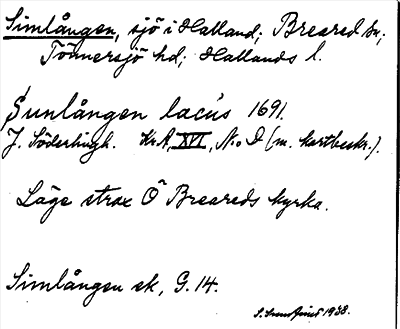 Simlången, sjö i Halland; Breared sn;
Tönnersjö hd; Hallands l.
Sunlången lacus 1691.
J. Söderlingh. Kr.A, XVI, No 2 (m. kartbeskr.).
Läge strax Ö Breareds kyrka.
Simlången ek, G. 14.
1938.